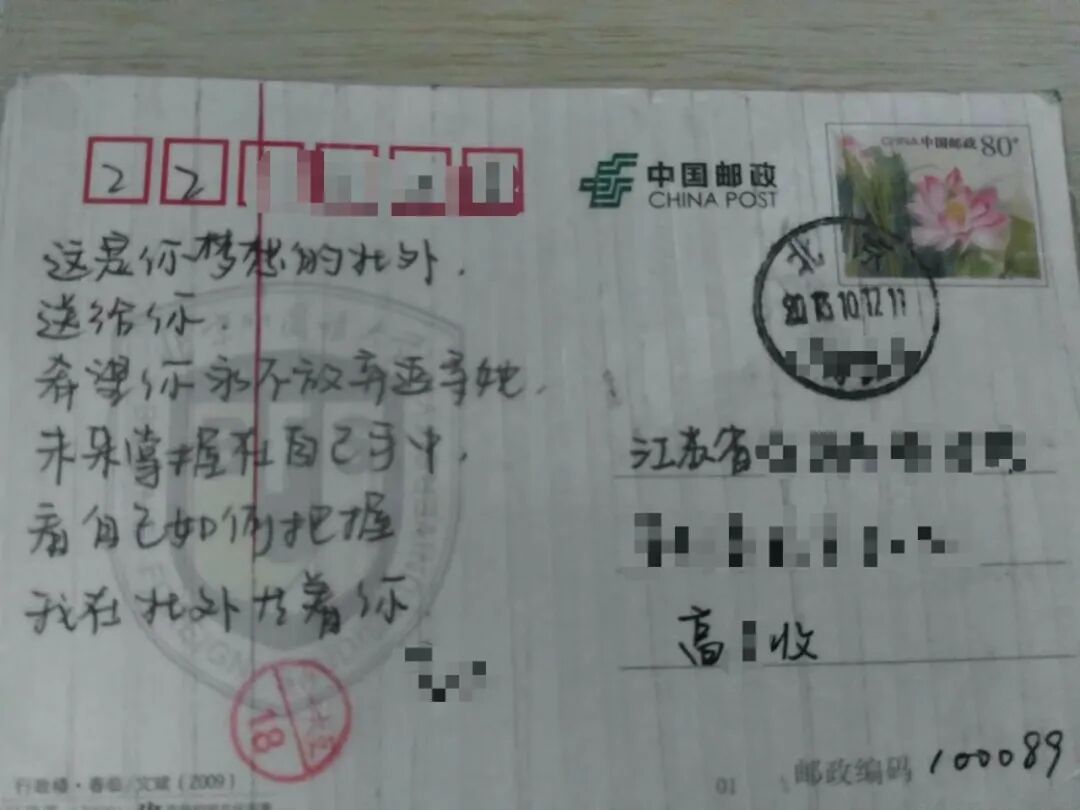 2 2
中国邮政
CHINA POST
CHINA 中国邮政 80
北京
10.12.17
这是你梦想的北外.
送给你.
希望你永不放弃追寻她.
未来掌握在自己手中.
看自己如何把握
我在北外 着你
江苏省
高 收
18
行政楼·春临/文斌(2009)
01
邮政编码 100089